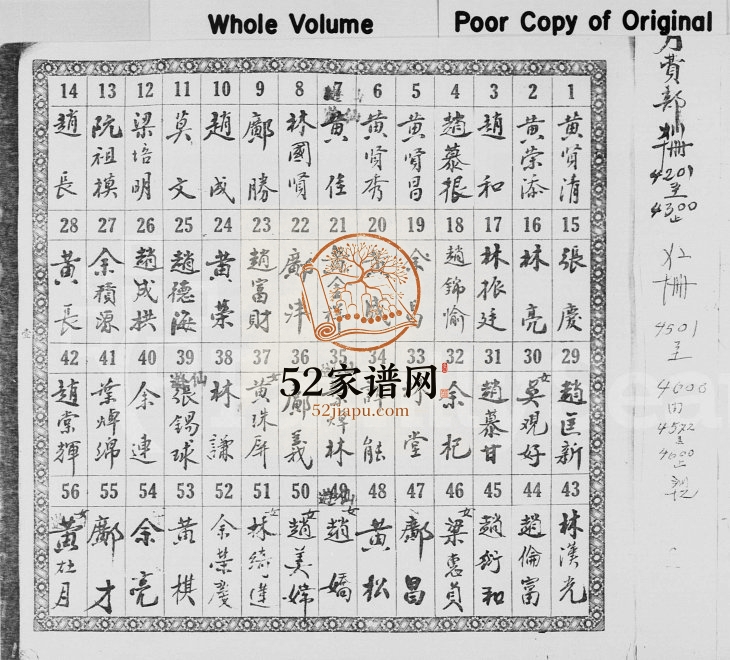 Whole Volume
Poor Copy of Original
14 13 12 11 10 9 8 7 6 5 4 3 2 1
趙長 阮祖模 梁培明 莫文 趙成 鄺勝 林國賢 黃佳 黃贤秀 黃賢昌 趙慕根 趙和 黃崇添 黃贤清
28 27 26 25 24 23 22 21 20 19 18 17 16 15
黃長 余積源 趙成拱 趙德海 黃榮 趙富財 鄺洋 余昌 趙錦愉 林振廷 林亮 張慶
42 41 40 39 38 37 36 35 34 33 32 31 30 29
趙崇輝 葉焯綿 余連 張錫球 林謙 黃珠屏 鄺義 林 能 堂 余杞 趙慕甘 吳覌好 趙匡新
52家谱网
52jiapu.com
56 55 54 53 52 51 50 49 48 47 46 45 44 43
黃社月 鄺才 余亮 黃棋 余榮 林綺蓮 趙美嫦 趙嬌 黃松 鄺昌 梁惠貞 趙衍和 趙倫富 林漢光
4201
至
4300
4501
至
4600